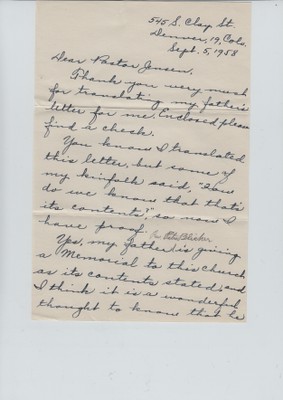 545 S. Clay St.
Denver, 19, Colo.
Sept. 5, 1958
Dear Pastor Jensen,
Thank you very much
for translating my father's
letter for me. Enclosed, please
find a check.
You know I translated
this letter, but some of
my kinfolk said, "How
do we know that that's
its contents," so now I
have proof.
Yes, my father is giving
a Memorial to this church
as its contents stated, and
I think it is a wonderful
thought to know that he